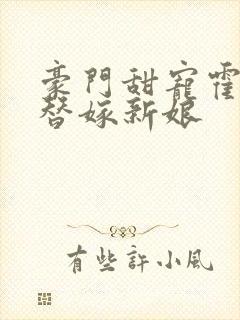 豪門甜寵霍
替嫁新娘
有些許小風